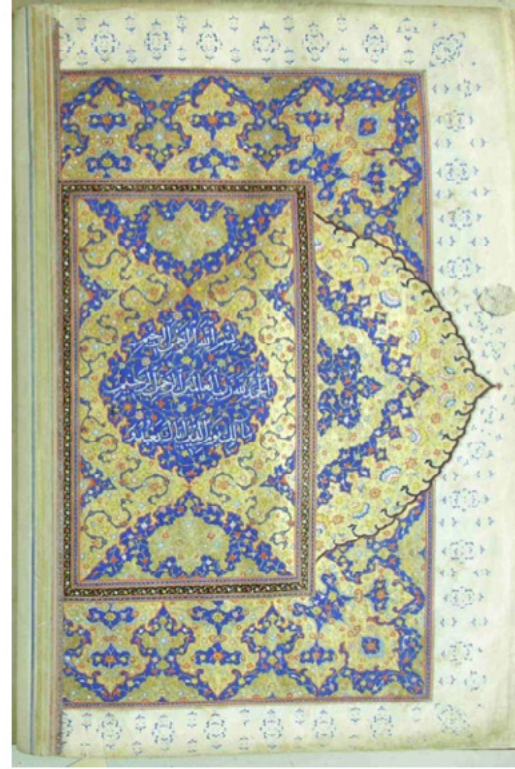 بسم الله الرحمن الرحيم
الحمد لله رب العالمين الرحمن الرحيم
مالك يوم الدين اياك نعبد و